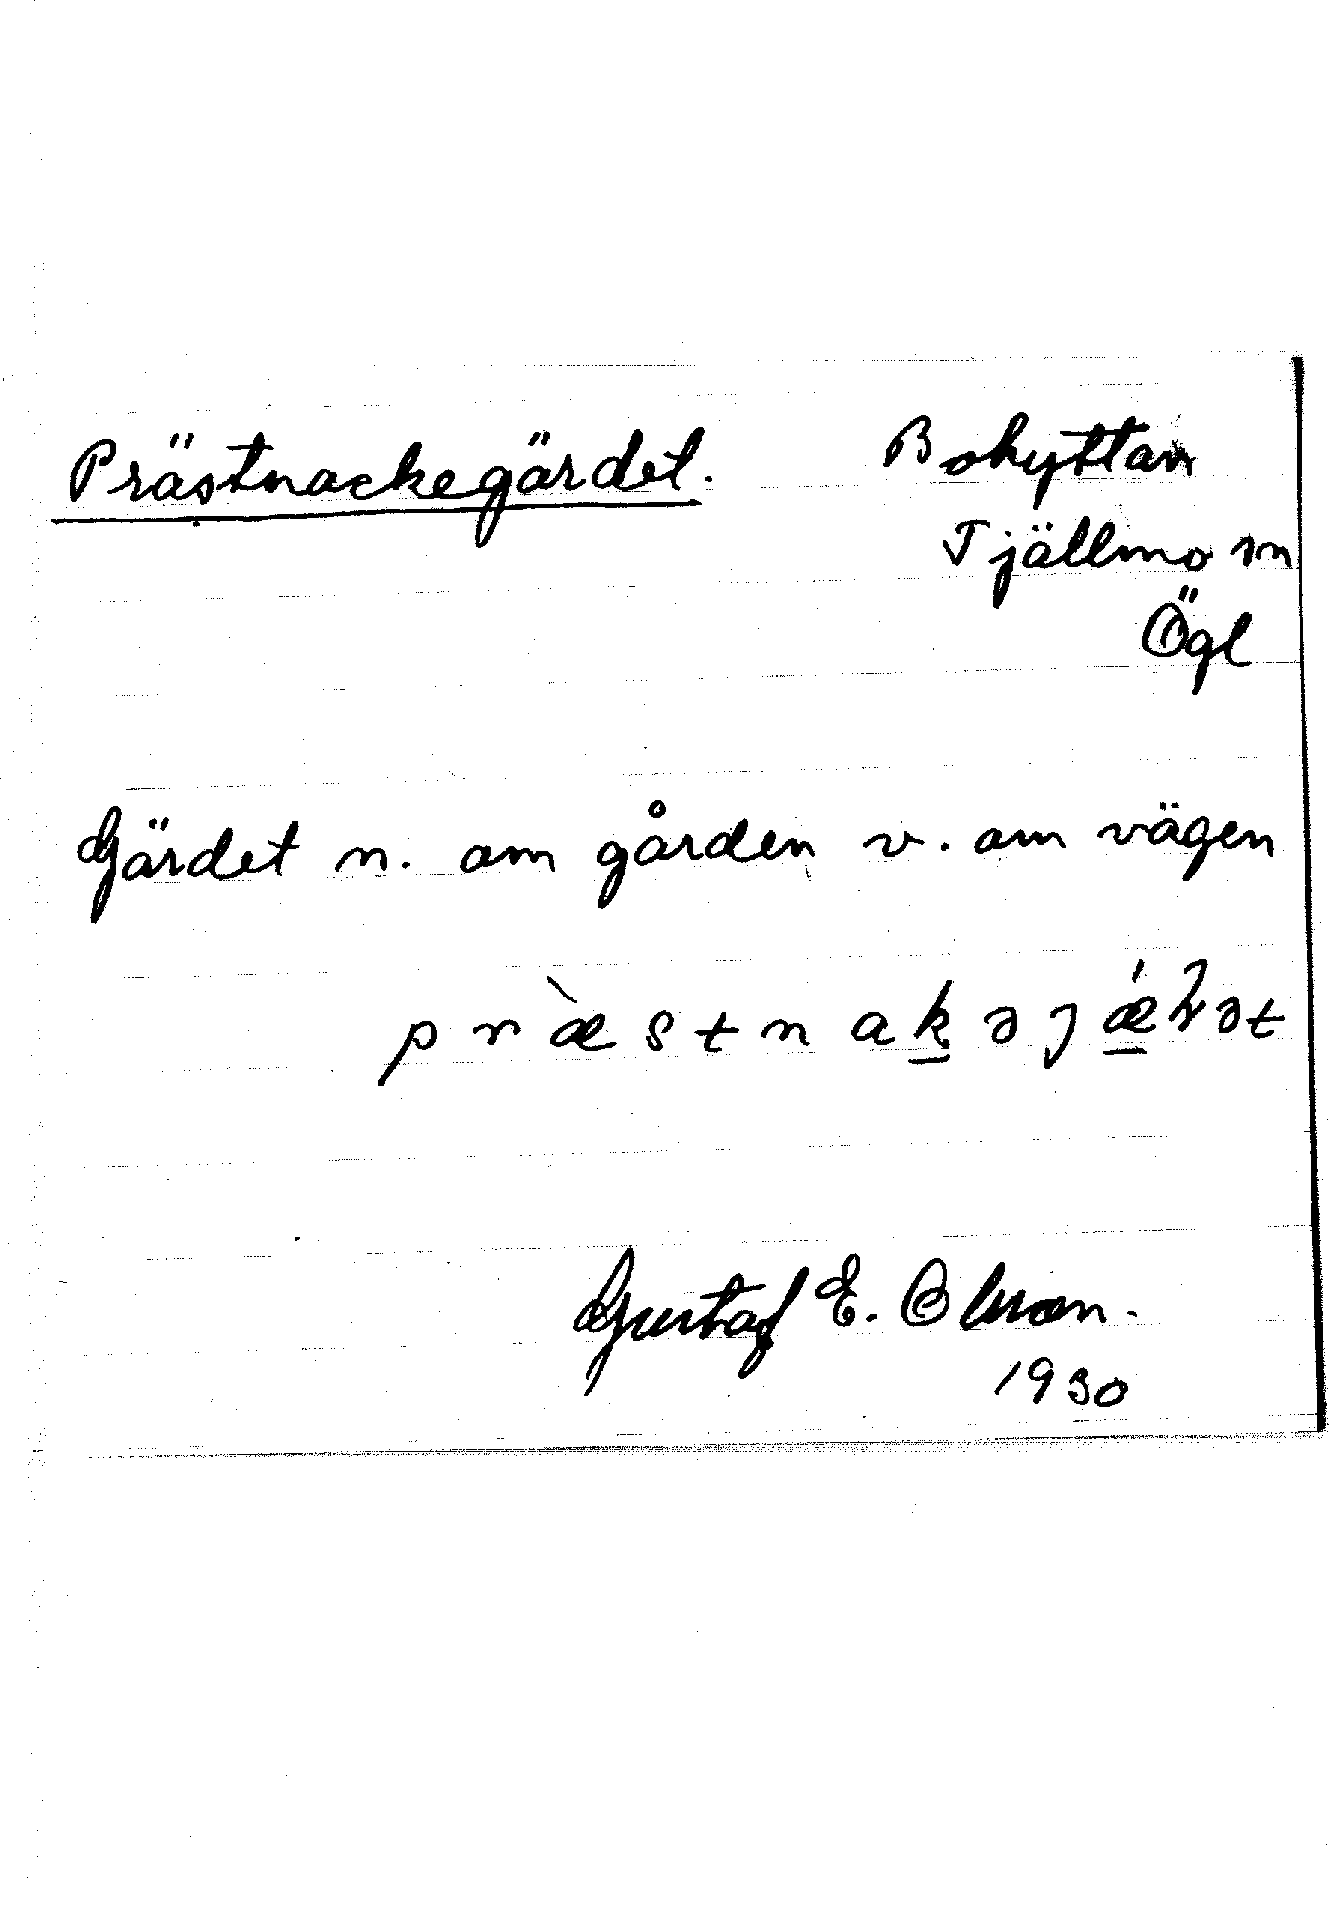 Prästnackegärdet. Bohyttan
Tjällmo sn
Ögl
Gärdet n. om gården v. om vägen
Gustaf E. Olsson.
1930